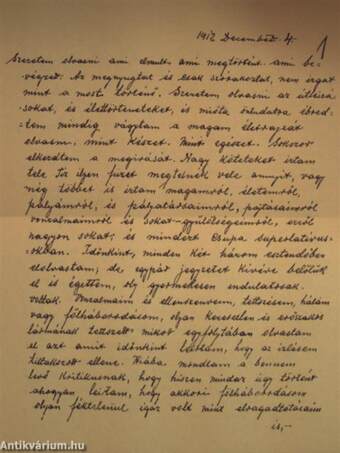 1912 December 4.
1
Szeretem olvasni ami elmult, ami megtörtént ami be-
végzett. Az megnyugtat és csak szórakoztat, nem izgat
mint a most történő. Szeretem olvasni az útleírá-
sokat, és élettörténeteket, és mióta öntudatra ébred-
tem mindig vágytam a magam életrajzát
olvasni, mint készet. Mint egészet. Sokszor
elkezdtem a megírását. Nagy köteteket írtam
tele. Tíz ilyen füzet megtelnék vele annyit, vagy
még többet is írtam magamról, életemről,
pályámról, és pályatársaimról, pajtásaimról
vonzalmaimról és sokat gyűlölségeimről, erről
nagyon sokat, és mindezt csupa superlativus-
okban. Időnkint, minden két három esztendőben
elolvastam, de egypár jegyzetet kivéve belőlük
el is égettem, oly gyermekesen indulatosak
voltak. Vonzalmaim és ellenszenveim, tetszésem, hálám
vagy fölháborodásom, olyan keresetlen és erőszakos
lármának tetszett mikor egyfolytában olvastam
el azt amit időnkint láttam, hogy az ízlésem
tiltakozott ellene. Hiába mondtam a bennem
levő kritikusnak, hogy hiszen mindaz úgy történt
ahogyan leírtam, hogy akkori fölháborodásom
olyan féktelenül igaz volt mint elragadtatásaim
is,-
Antikvárium.hu